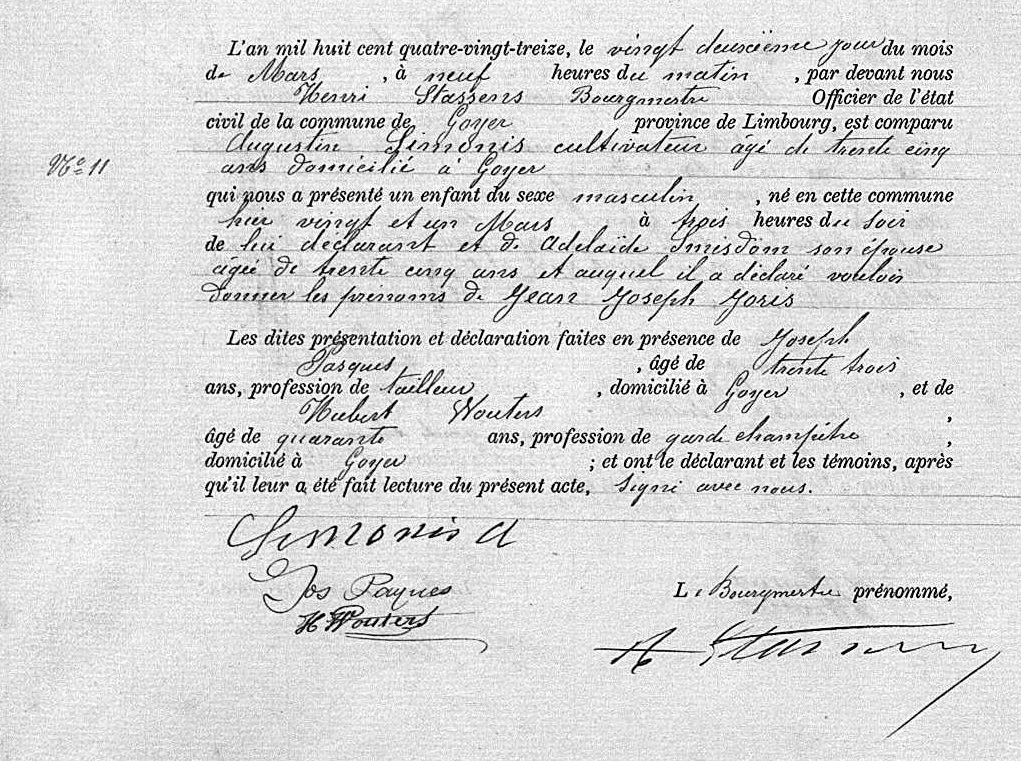 L'an mil huit cent quatre-vingt-treize, le vingt deuxième jour du mois
de Mars , à neuf heures du matin , par devant nous
Henri Stassens Bourgmestre Officier de l'état
civil de la commune de Goyer province de Limbourg, est comparu
Augustin Simonis cultivateur âgé de trente cinq
ans domicilié à Goyer
N° 11
qui nous a présenté un enfant du sexe masculin , né en cette commune
hier vingt et un Mars à trois heures du soir
de lui déclarant et de Adelaïde Smisdom son épouse
âgée de trente cinq ans et auquel il a déclaré vouloir
donner les prénoms de Jean Joseph Joris
Les dites présentation et déclaration faites en présence de Joseph
Pasques , âgé de trente trois
ans, profession de tailleur , domicilié à Goyer , et de
Hubert Wouters ,
âgé de quarante ans, profession de garde champêtre ,
domicilié à Goyer ; et ont le déclarant et les témoins, après
qu'il leur a été fait lecture du présent acte, signé avec nous.
Simonis A
Jos Paques
H Wouters
Le Bourgmestre prénommé,
H Stassens